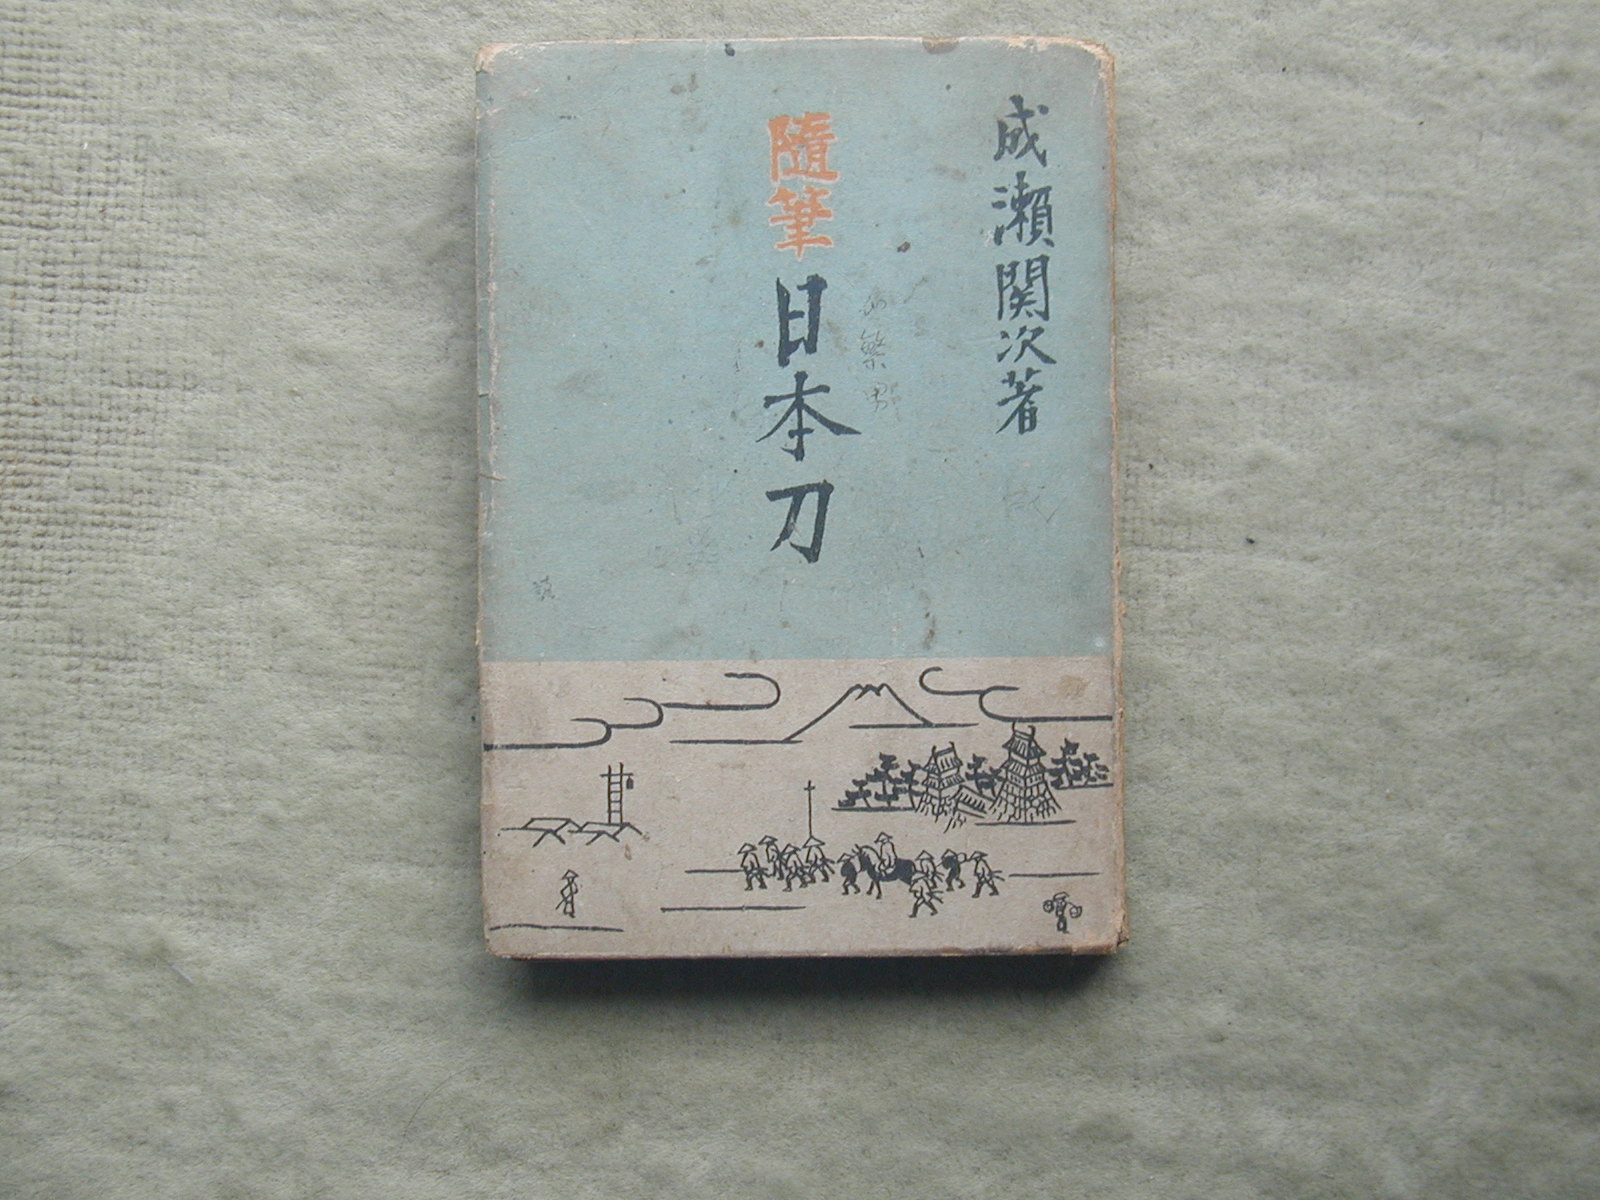 成瀬関次著
隨筆日本刀